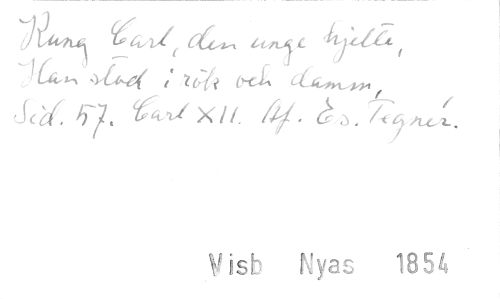 Kung Carl, den unge hjelte,
Han stod i rök och damm,
Sid. 57. Carl XII. Af. Es. Tegnér.
Visb Nyas 1854